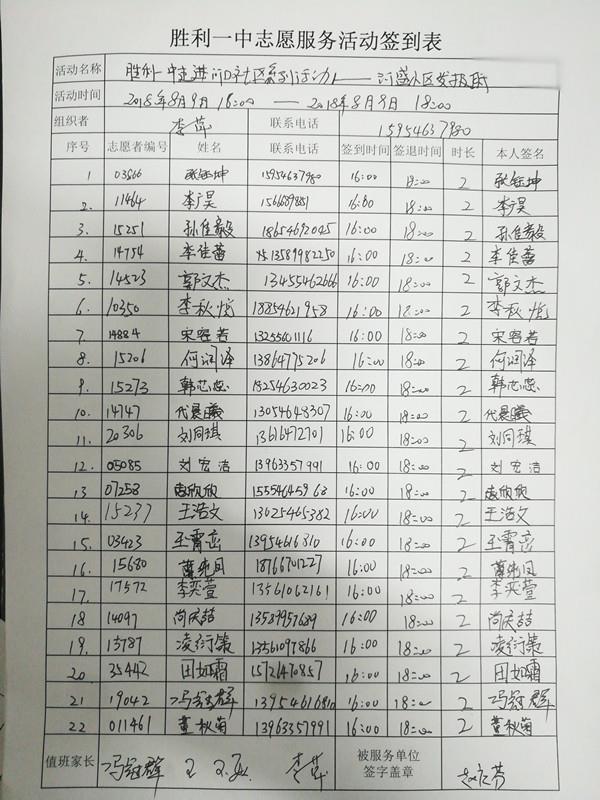 胜利一中志愿服务活动签到表
活动名称 胜利一中走进 社区系列活动 小区发报纸
活动时间 2018年8月9日 16:00 —— 2018年8月9日 18:00
组织者 李萍 联系电话 15954637980
序号 志愿者编号 姓名 联系电话 签到时间 签退时间 时长 本人签名
1 03866 张钰坤 15954637980 16:00 18:00 2 张钰坤
2. 11464 李广昊 16:00 18:00 2 李广昊
3. 15251 孙佳毅 18654692045 16:00 18:00 2 孙佳毅
4. 14754 李佳蕾 13589982250 16:00 18:00 2 李佳蕾
5. 14523 郭文杰 13455462666 16:00 18:00 2 郭文杰
6. 10350 李秋悦 18854621958 16:00 18:00 2 李秋悦
7. 14884 宋容若 13255601116 16:00 18:00 2 宋容若
8. 15206 何润泽 13864775206 16:00 18:00 2 何润泽
9. 15273 韩芯蕊 18254630023 16:00 18:00 2 韩芯蕊
10. 14747 代晨曦 13054648307 16:00 18:00 2 代晨曦
11. 20306 刘同琪 13616472701 16:00 18:00 2 刘同琪
12. 05085 刘宏洁 13963357991 16:00 18:00 2 刘宏洁
13 07258 欣欣 16:00 18:00 2 欣欣
14. 15237 王浩文 13625465382 16:00 18:00 2 王浩文
15. 03423 王霄峦 13954616810 16:00 18:00 2 王霄峦
16. 15680 18766701227 16:00 18:00 2
17. 17572 李奕萱 13561062161 16:00 18:00 2 李奕萱
18 14097 尚庆喆 13589957689 16:00 18:00 2 尚庆喆
19. 15787 凌衍策 13561097866 16:00 18:00 2 凌衍策
20 35442 田如霜 15726470857 16:00 18:00 2 田如霜
21 19042 冯钰群 13954616810 16:00 18:00 2 冯钰群
22 011461 董秋菊 13963357991 16:00 18:00 2 董秋菊
值班家长 冯钰群 李萍 被服务单位
签字盖章